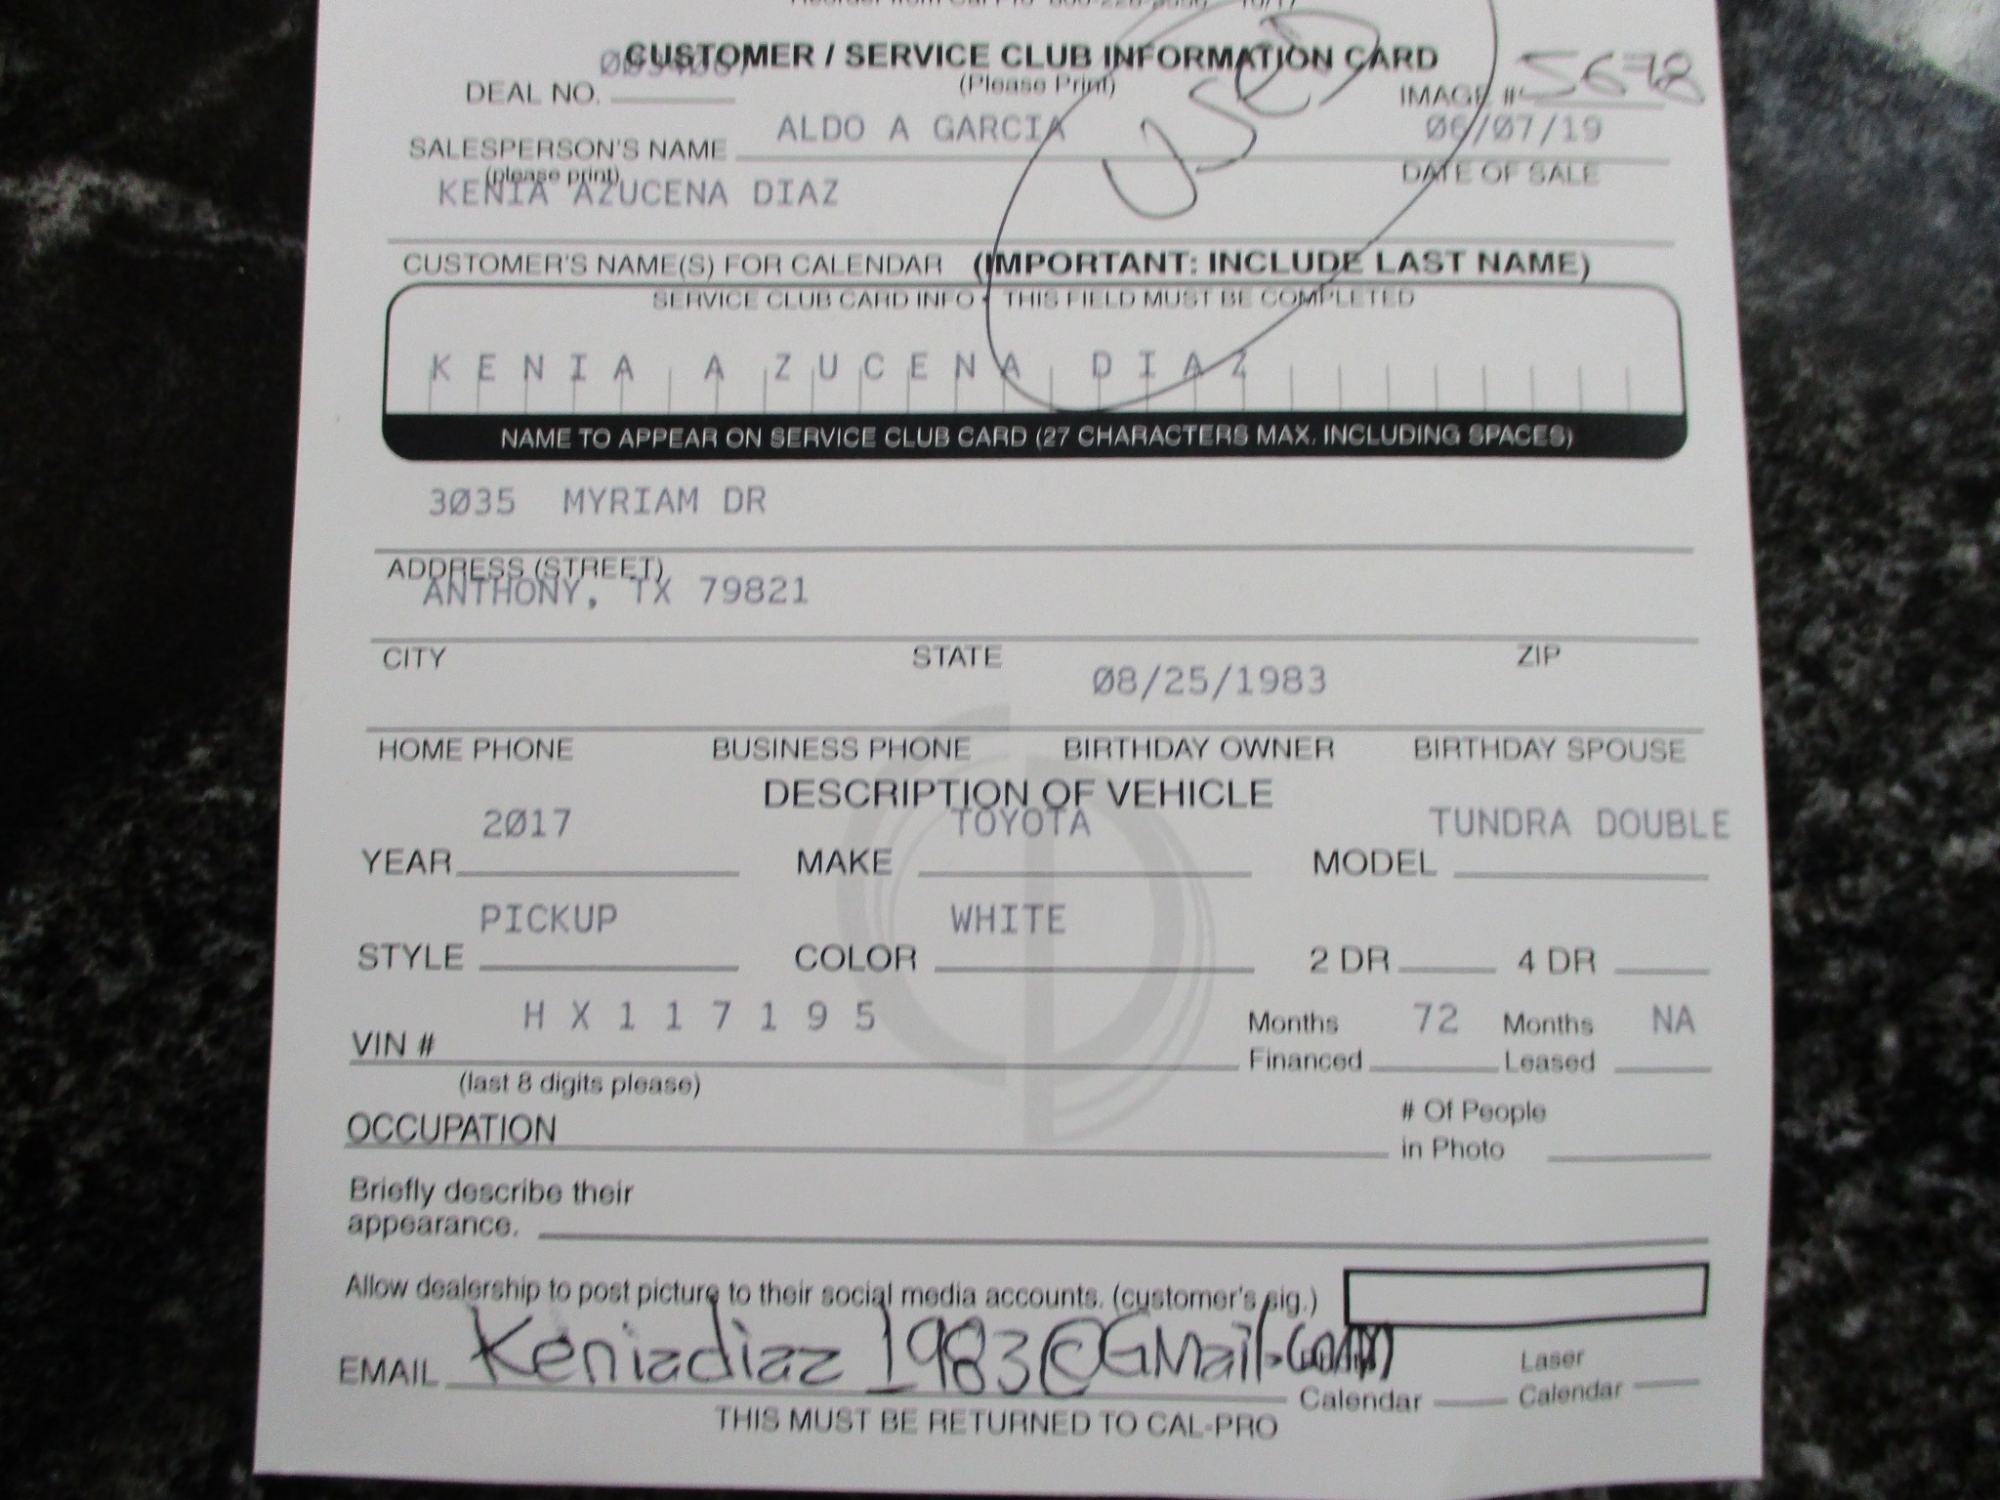 CUSTOMER / SERVICE CLUB INFORMATION CARD
(Please Print)
DEAL NO.
IMAGE # 5678
USED
SALESPERSON'S NAME ALDO A GARCIA 06/07/19
(please print) DATE OF SALE
KENIA AZUCENA DIAZ
CUSTOMER'S NAME(S) FOR CALENDAR (IMPORTANT: INCLUDE LAST NAME)
SERVICE CLUB CARD INFO - THIS FIELD MUST BE COMPLETED
KENIA AZUCENA DIAZ
NAME TO APPEAR ON SERVICE CLUB CARD (27 CHARACTERS MAX. INCLUDING SPACES)
3035 MYRIAM DR
ADDRESS (STREET)
ANTHONY, TX 79821
CITY STATE ZIP
08/25/1983
HOME PHONE BUSINESS PHONE BIRTHDAY OWNER BIRTHDAY SPOUSE
DESCRIPTION OF VEHICLE
YEAR 2017 MAKE TOYOTA MODEL TUNDRA DOUBLE
STYLE PICKUP COLOR WHITE 2 DR 4 DR
VIN # HX117195 Months Financed 72 Months Leased NA
(last 8 digits please)
OCCUPATION # Of People in Photo
Briefly describe their
appearance.
Allow dealership to post picture to their social media accounts. (customer's sig.)
EMAIL Keniadiaz1983@GMail.com Calendar Laser Calendar
THIS MUST BE RETURNED TO CAL-PRO